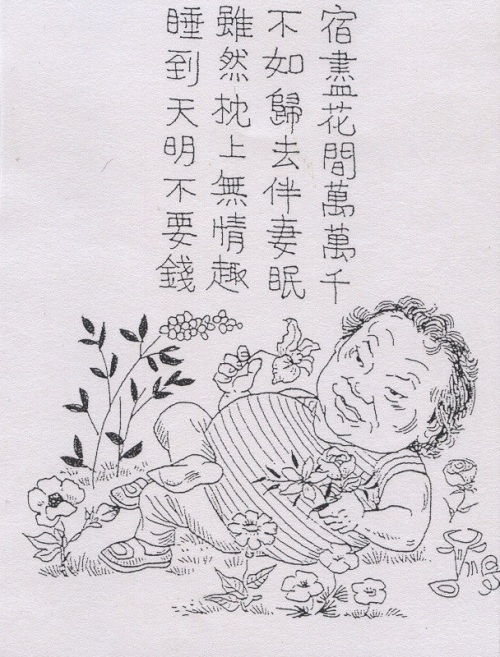 宿盡花間萬萬千
不如歸去伴妻眠
雖然枕上無情趣
睡到天明不要錢